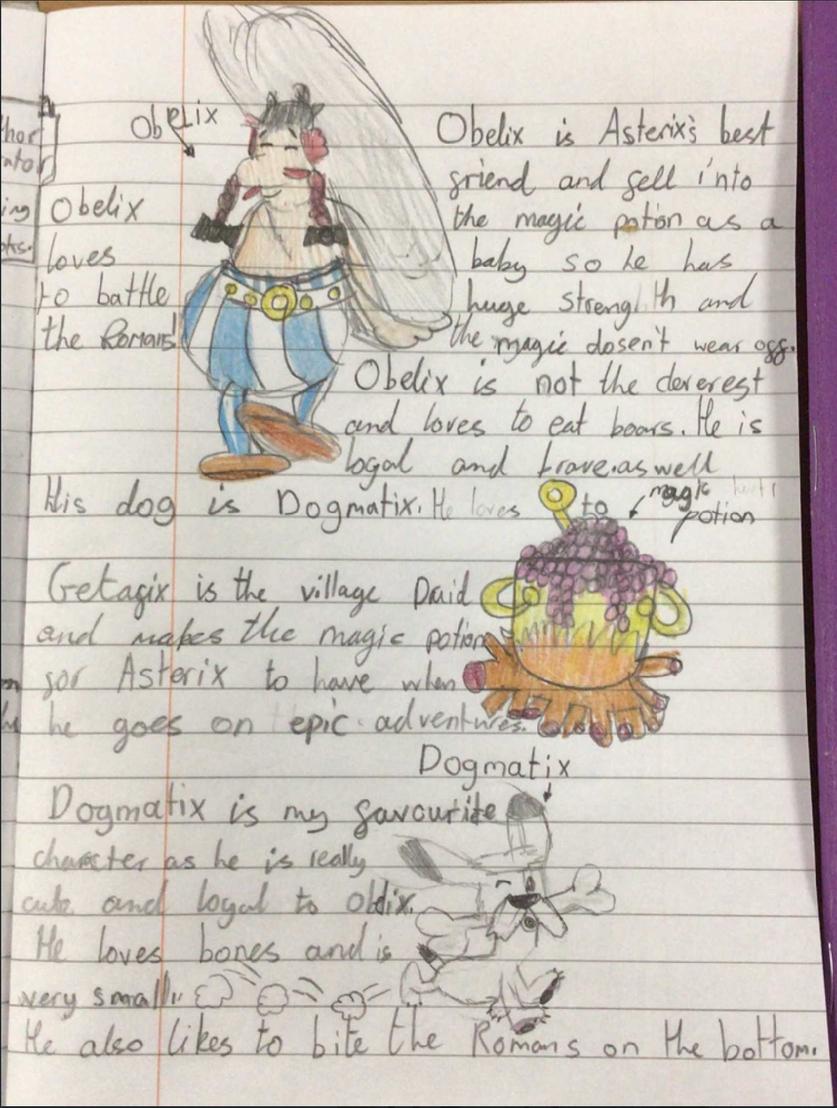 hor
ator
ing
Obelix
Obelix is Asterix's best
friend and fell into
the magic potion as a
baby so he has
huge strength and
the magic dosen't wear off.
Obelix
loves
to battle
the Romans
Obelix is not the cleverest
and loves to eat boars. He is
loyal and brave.as well
His dog is Dogmatix. He loves to
magic
potion
Getafix is the village Druid
and makes the magic potion
for Asterix to have when
he goes on epic adventures.
Dogmatix
Dogmatix is my favourite
character as he is really
cute and loyal to Oblix.
He loves bones and is
very small
He also likes to bite the Romans on the bottom.